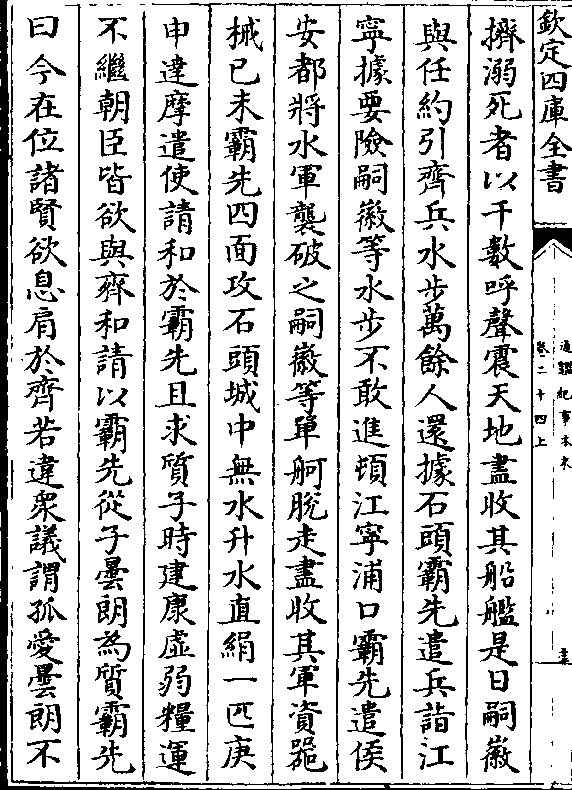 欽定四庫全書
通鑑紀事本末
卷二十四上
擠溺死者以千數呼聲震天地盡收其船艦是日嗣徽
與任約引齊兵水步萬餘人還據石頭霸先遣兵詣江
寧據要險嗣徽等水步不敢進頓江寧浦口霸先遣侯
安都將水軍襲破之嗣徽等單舸脫走盡收其軍資器
械已未霸先四面攻石頭城中無水升水直絹一匹庚
申達摩遣使請和於霸先且求質子時建康虛弱糧運
不繼朝臣皆欲與齊和請以霸先從子曇朗為質霸先
曰今在位諸賢欲息肩於齊若違衆議謂孤愛曇朗不